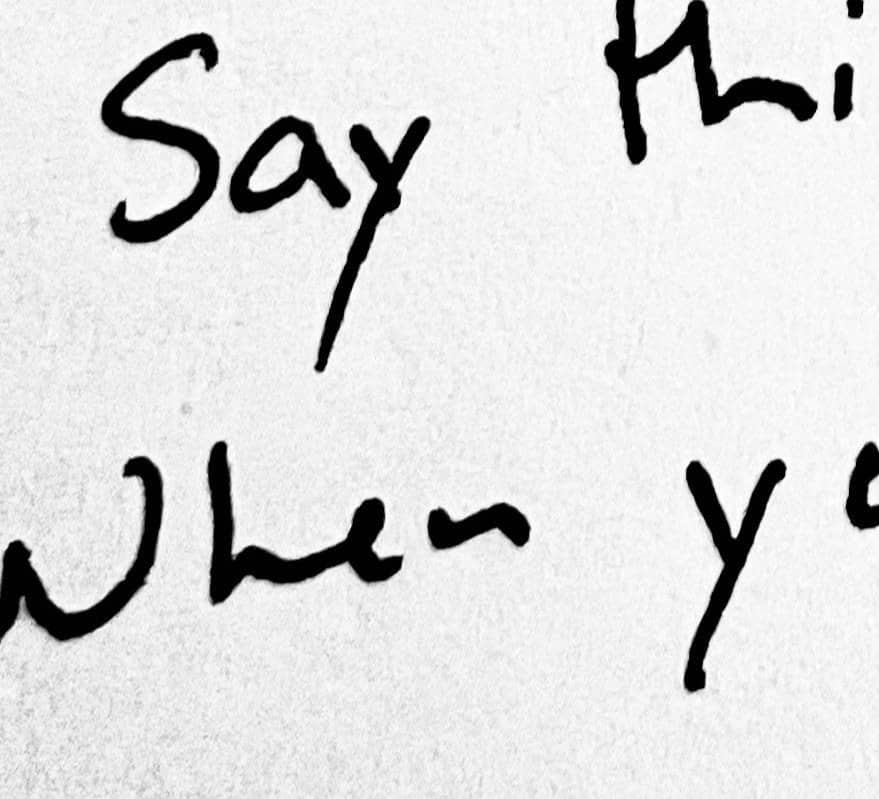 Say thi
When yo